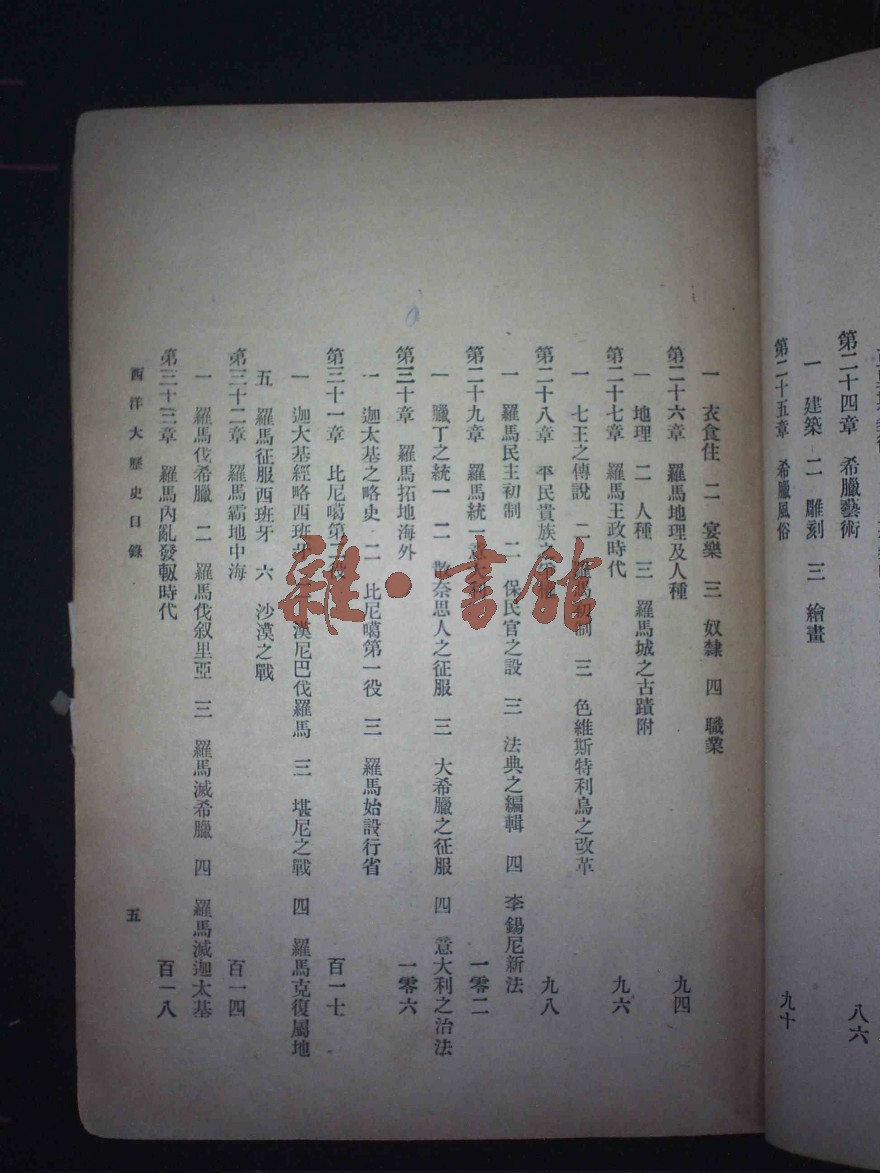 第二十四章 希臘藝術 八六
一 建築 二 雕刻 三 繪畫
第二十五章 希臘風俗 九十
一 衣食住 二 宴樂 三 奴隸 四 職業
第二十六章 羅馬地理及人種 九四
一 地理 二 人種 三 羅馬城之古蹟附
第二十七章 羅馬王政時代 九六
一 七王之傳說 二 羅馬初制 三 色維斯特利烏之改革
第二十八章 平民貴族之 九八
一 羅馬民主初制 二 保民官之設 三 法典之編輯 四 李錫尼新法
第二十九章 羅馬統一意大利 一零二
一 臘丁之統一 二 散奈思人之征服 三 大希臘之征服 四 意大利之治法
第三十章 羅馬拓地海外 一零六
一 迦太基之略史 二 比尼噶第一役 三 羅馬始設行省
第三十一章 比尼噶第二役 百一十
一 迦大基經略西班牙 二 漢尼巴伐羅馬 三 堪尼之戰 四 羅馬克復屬地
五 羅馬征服西班牙 六 沙漠之戰
第三十二章 羅馬霸地中海 百一四
一 羅馬伐希臘 二 羅馬伐敘里亞 三 羅馬滅希臘 四 羅馬滅迦太基
第三十三章 羅馬內亂發軔時代 百一八
西洋大歷史目錄 五
雜·書館